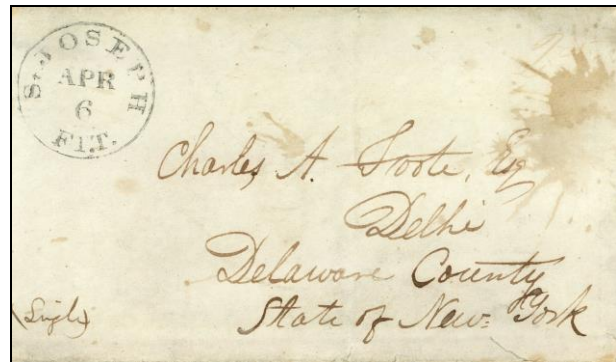 St. JOSEPH
APR
6
Fl.T.
Charles A. Foote, Esq
Delhi
Delaware County
State of New=York
(Single)